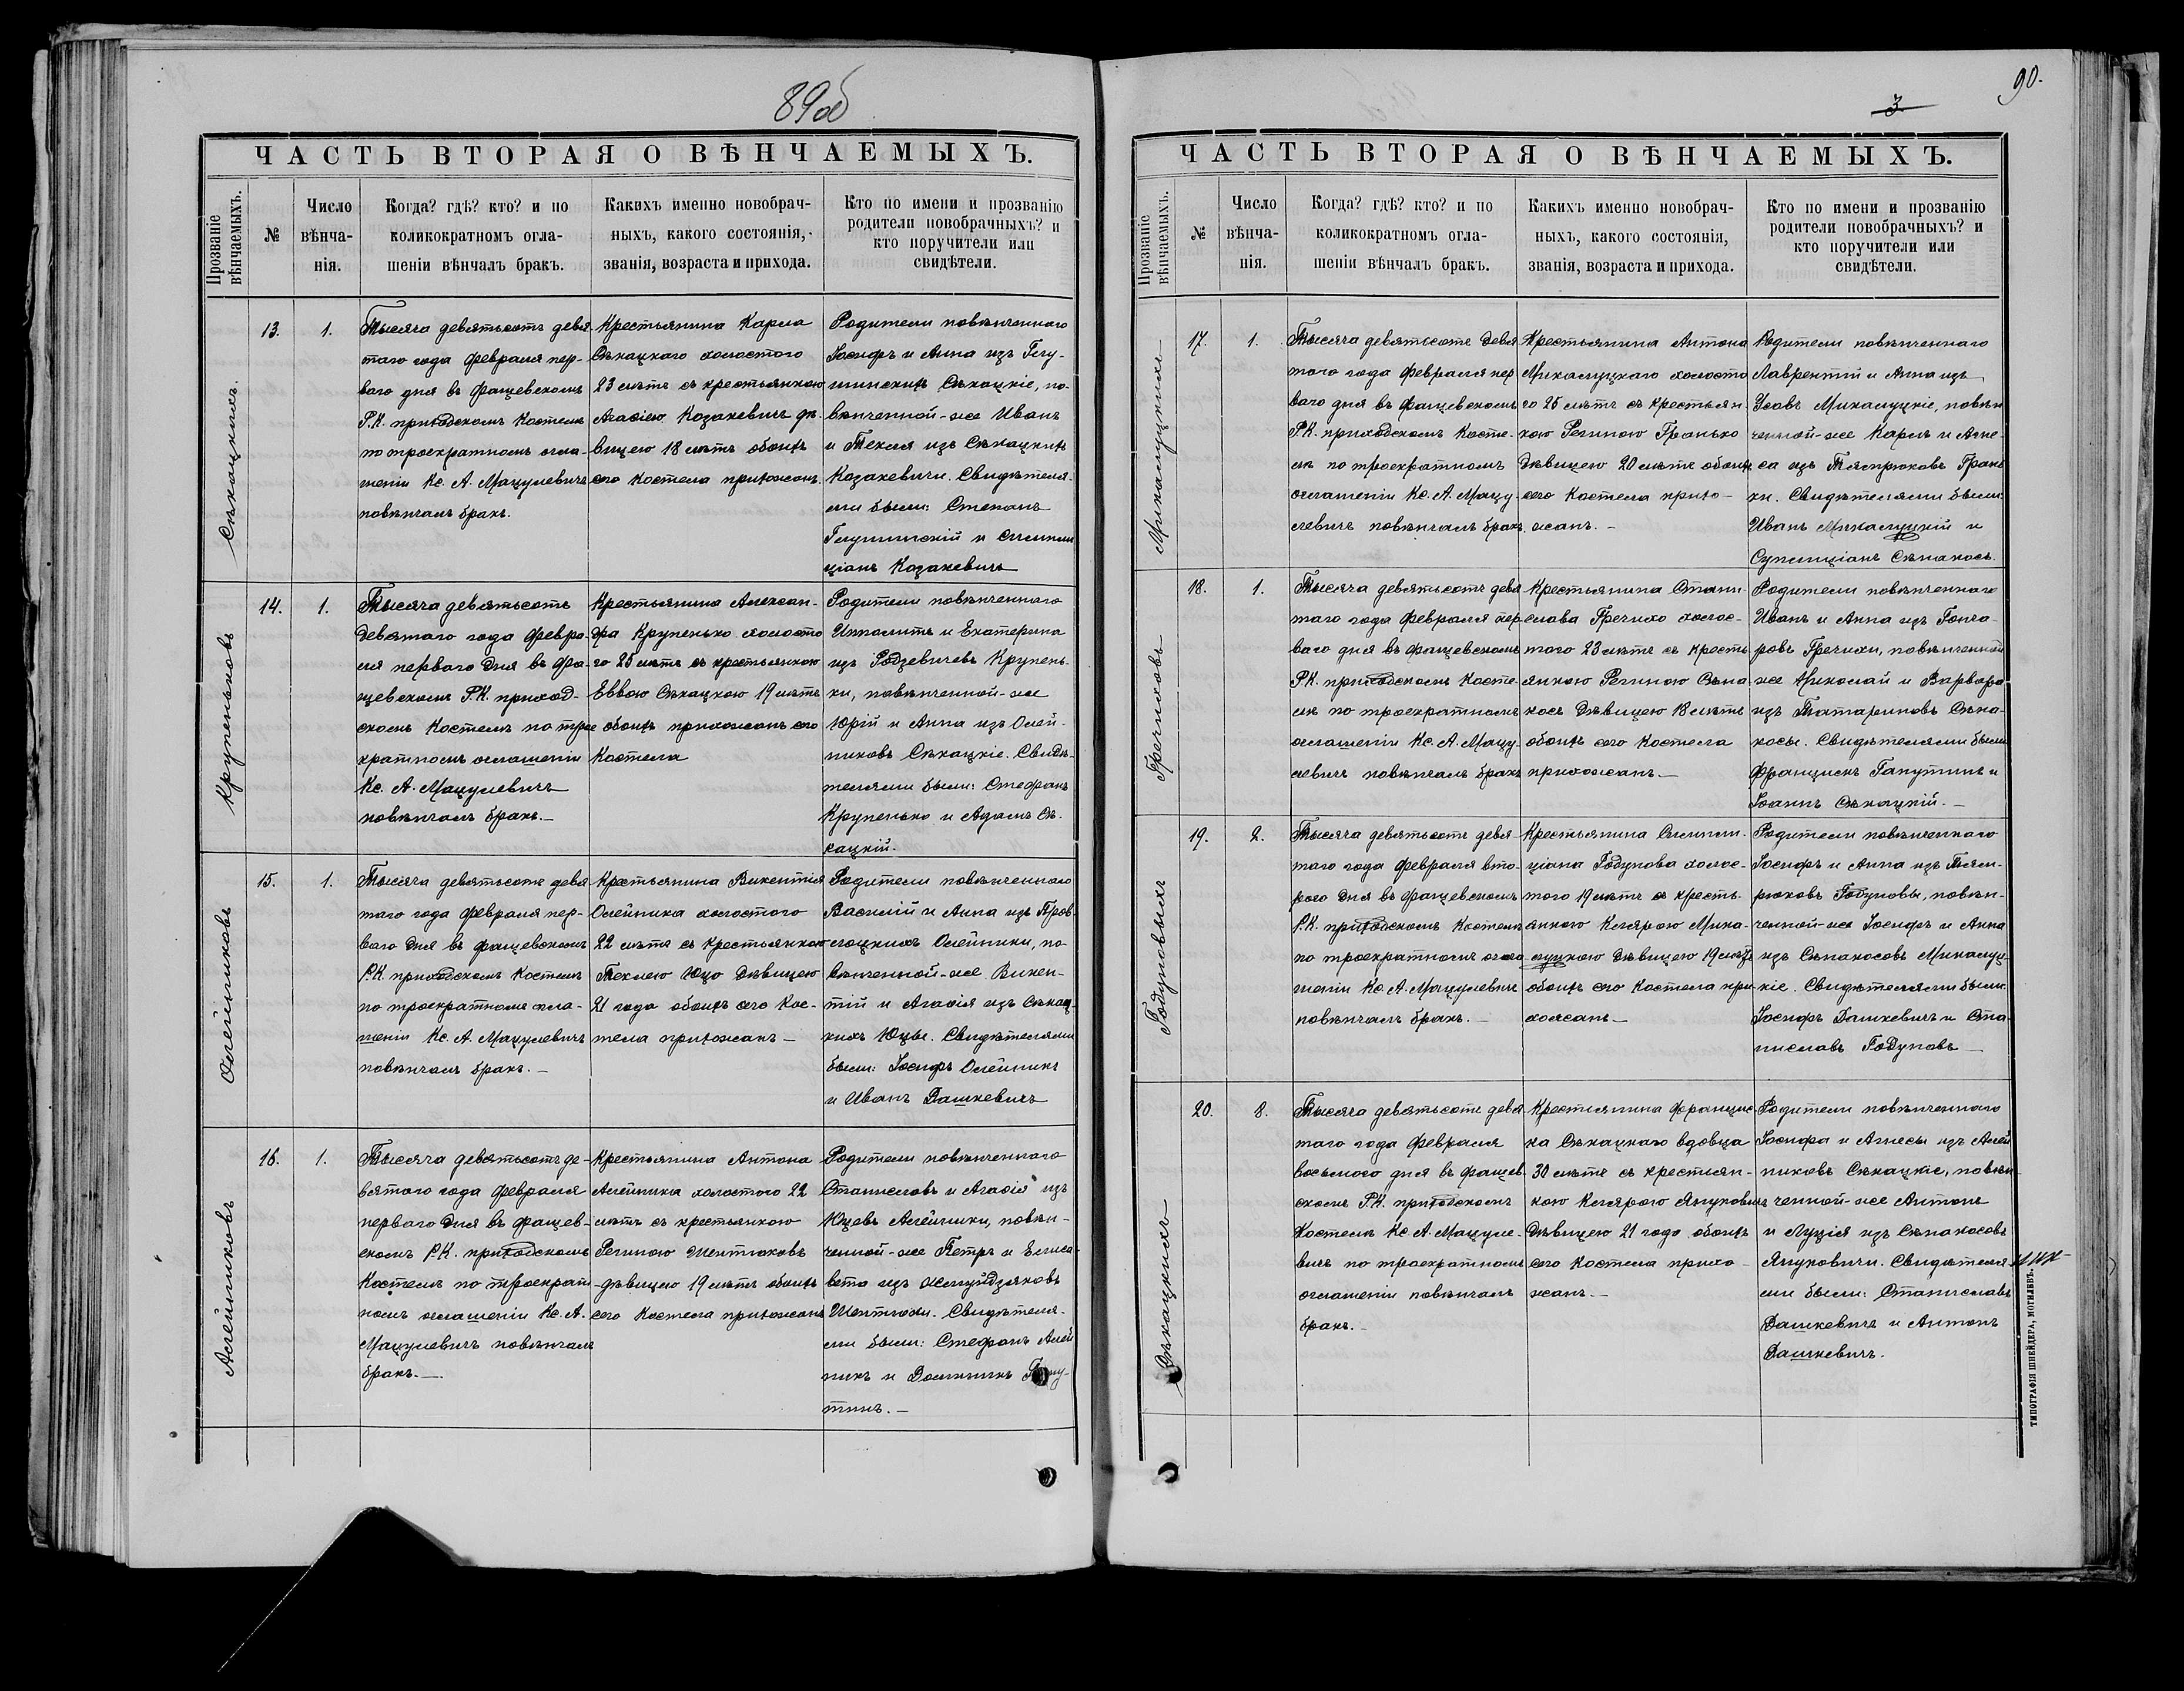 89об
ЧАСТЬ ВТОРАЯ О ВѢНЧАЕМЫХЪ.
Прозваніе вѣнчаемыхъ.
№
Число вѣнча-
нія.
Когда? гдѣ? кто? и по
коликократномъ огла-
шеніи вѣнчалъ бракъ.
Какихъ именно новобрач-
ныхъ, какого состоянія,
званія, возраста и прихода.
Кто по имени и прозванію
родители новобрачныхъ? и
кто поручители или
свидѣтели.
Сѣкацкихъ.
13.
1.
Тысяча девятьсотъ девя-
таго года февраля пер-
ваго дня въ Фащевскомъ
Р.К. приходскомъ Костелѣ
по троекратномъ огла-
шеніи Кс. А. Мацулевичъ
повѣнчалъ бракъ.
Крестьянина Карла
Сѣкацкаго холостого
23 лѣтъ съ крестьянкою
Агафіею Козакевичъ дѣ-
вицею 18 лѣтъ обоихъ
сего Костела прихожанъ.
Родители повѣнченнаго
Іосифъ и Анна изъ Глу-
шинскихъ Сѣкацкіе, по-
вѣнченной-же Иванъ
и Текля изъ Сѣкацкихъ
Козакевичи. Свидѣтеля-
ми были: Степанъ
Глушинскій и Симпли
ціанъ Козакевичъ
Крупеньковъ
14.
1.
Тысяча девятьсотъ
девятаго года февра-
ля перваго дня въ Фа-
щевскомъ Р.К. приход-
скомъ Костелѣ по трое
кратномъ оглашеніи
Кс. А. Мацулевичъ
повѣнчалъ бракъ.-
Крестьянина Алексан-
дра Крупенько холосто
го 25 лѣтъ съ крестьянкою
Еввою Сѣкацкою 19 лѣтъ
обоихъ прихожанъ сего
Костела
Родители повѣнченнаго
Ипполитъ и Екатерина
изъ Родзевичевъ Крупень-
ки, повѣнченной-же
Юрій и Анна изъ Олей-
никовъ Сѣкацкіе. Свидѣ-
телями были: Стефанъ
Крупенько и Адамъ Сѣ-
кацкій.
Олейниковъ
15.
1.
Тысяча девятьсотъ девя
таго года февраля пер-
ваго дня въ Фащевскомъ
Р.К. приходскомъ Костелѣ
по троекратномъ огла-
шеніи Кс. А. Мацулевичъ
повѣнчалъ бракъ.-
Крестьянина Викентія
Олейника холостого
22 лѣтъ съ крестьянкою
Теклею Юцо дѣвицею
21 года обоихъ сего Кос-
тела прихожанъ-
Родители повѣнченнаго
Василій и Анна изъ
Олейники, по
вѣнченной-же Викен-
тій и Агафія изъ Сѣкац-
кихъ Юцы. Свидѣтелями
были: Іосифъ Олейникъ
и Иванъ Дашкевичъ
Алейниковъ
16.
1.
Тысяча девятьсотъ де-
вятаго года февраля
перваго дня въ Фащев-
скомъ Р.К. приходскомъ
Костелѣ по троекрат-
номъ оглашеніи Кс. А.
Мацулевичъ повѣнчалъ
бракъ.-
Крестьянина Антона
Алейника холостого 22
лѣтъ съ крестьянкою
Региною Шентюковъ
-дѣвицею 19 лѣтъ обоихъ
сего Костела прихожанъ
Родители повѣнченнаго
Станиславъ и Агафія изъ
Юцевъ Алейники, повѣн-
ченной-же Петръ и Елиса-
вета изъ Жмуйдзяковъ
Шентюки. Свидѣтеля-
ми были: Стефанъ Алей
никъ и Доминикъ
тинъ.-
3
90.
ЧАСТЬ ВТОРАЯ О ВѢНЧАЕМЫХЪ.
Прозваніе вѣнчаемыхъ.
№
Число вѣнча-
нія.
Когда? гдѣ? кто? и по
коликократномъ огла-
шеніи вѣнчалъ бракъ.
Какихъ именно новобрач-
ныхъ, какого состоянія,
званія, возраста и прихода.
Кто по имени и прозванію
родители новобрачныхъ? и
кто поручители или
свидѣтели.
Микалуцкихъ
17.
1.
Тысяча девятьсотъ девя
таго года февраля пер
ваго дня въ Фащевскомъ
Р.К. приходскомъ Косте-
лѣ по троекратномъ
оглашеніи Кс. А. Мацу-
левичъ повѣнчалъ бракъ
Крестьянина Антона
Микалуцкаго холосто
го 25 лѣтъ съ крестьян-
кою Региною Гранько
дѣвицею 20 лѣтъ обоихъ
сего Костела прихо-
жанъ.-
Родители повѣнченнаго
Лаврентій и Анна изъ
Микалуцкіе, повѣн
ченной-же Карлъ и Агне-
са изъ Тяпрюковъ Грань
ки. Свидѣтелями были:
Иванъ Микалуцкій и
Сулпиціанъ Сѣнакосъ.
Гречиховъ
18.
1.
Тысяча девятьсотъ девя
таго года февраля пер
ваго дня въ Фащевскомъ
Р.К. приходскомъ Косте-
лѣ по троекратномъ
оглашеніи Кс. А. Мацу-
левичъ повѣнчалъ бракъ
Крестьянина Стани-
слава Гречихо холос-
того 23 лѣтъ съ кресть
янкою Региною Сѣна-
косъ дѣвицею 18 лѣтъ
обоихъ сего Костела
прихожанъ-
Родители повѣнченнаго
Иванъ и Анна изъ Гонча-
ровъ Гречихи, повѣнченной
же Николай и Варвара
изъ Татариновъ Сѣна-
косы. Свидѣтелями были
Францискъ Гапутинъ и
Іоаннъ Сѣкацкій.-
Годуновыхъ
19.
2.
Тысяча девятьсотъ девя-
таго года февраля вто-
рого дня въ Фащевскомъ
Р.К. приходскомъ Костелѣ
по троекратномъ огла
шеніи Кс. А. Мацулевичъ
повѣнчалъ бракъ.-
Крестьянина Симпли-
ціана Годунова холос-
того 19 лѣтъ съ кресть-
янкою Клярою Мика-
луцкою дѣвицею 19 лѣтъ
обоихъ сего Костела при-
хожанъ-
Родители повѣнченнаго
Іосифъ и Анна изъ Тям-
рюковъ Годуновы, повѣн-
ченной-же Іосифъ и Анна
изъ Сѣнакосовъ Микалуц-
кіе. Свидѣтелями были
Іосифъ Дашкевичъ и Ста
ниславъ Годуновъ-
Сѣкацкихъ
20.
8.
Тысяча девятьсотъ девя
таго года февраля
восьмого дня въ Фащев
скомъ Р.К. приходскомъ
Костелѣ Кс. А. Мацуле-
вичъ по троекратномъ
оглашеніи повѣнчалъ
бракъ.-
Крестьянина Францис
ка Сѣкацкаго вдовца
30 лѣтъ съ крестьян-
кою Клярою Януковичъ
дѣвицею 21 года обоихъ
сего Костела прихо-
жанъ.-
Родители повѣнченнаго
Іосифа и Агнесы изъ Алей
никовъ Сѣкацкіе, повѣн
ченной-же Антонъ
и Луція изъ Сѣнакосовъ
Януковичи. Свидѣтеля-
ми были: Станиславъ
Дашкевичъ и Антонъ
Дашкевичъ.
ТИПОГРАФІЯ ШНЕЙДЕРА, МОГИЛЕВЪ.